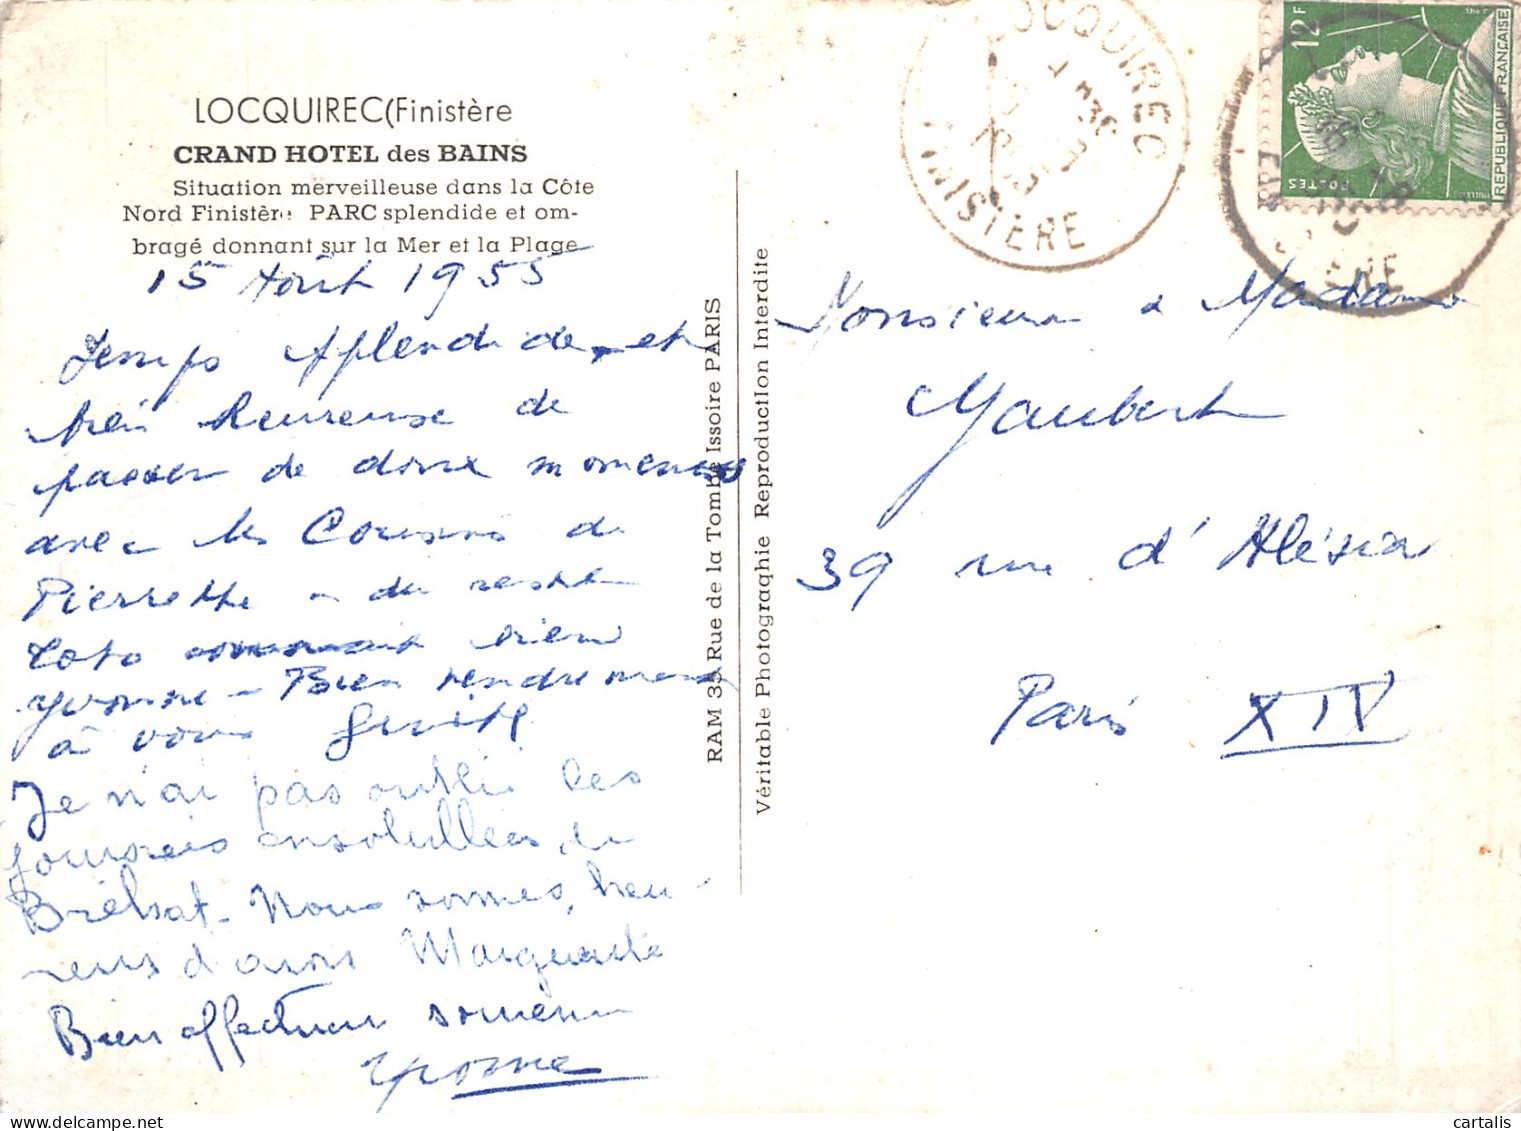 LOCQUIREC(Finistère
CRAND HOTEL des BAINS
Situation merveilleuse dans la Côte
Nord Finistère PARC splendide et om-
bragé donnant sur la Mer et la Plage
15 Août 1955
Temps splendide et
très heureuse de
passer de doux moments
avec les Cousins de
Pierrette
Yvonne - Bien tendrement
à vous
Je n'ai pas oublié les
journées ensoleillées de
Nous sommes heu-
reux d'avoir Marguerite
Bien affectueux souvenir
Yvonne
RAM 35 Rue de la Tombe Issoire PARIS
Véritable Photographie Reproduction Interdite
LOCQUIREC
FINISTÈRE
12F
POSTES
REPUBLIQUE FRANÇAISE
Monsieur & Madame
Maubert
39 rue d'Alésia
Paris XIV
cartalis